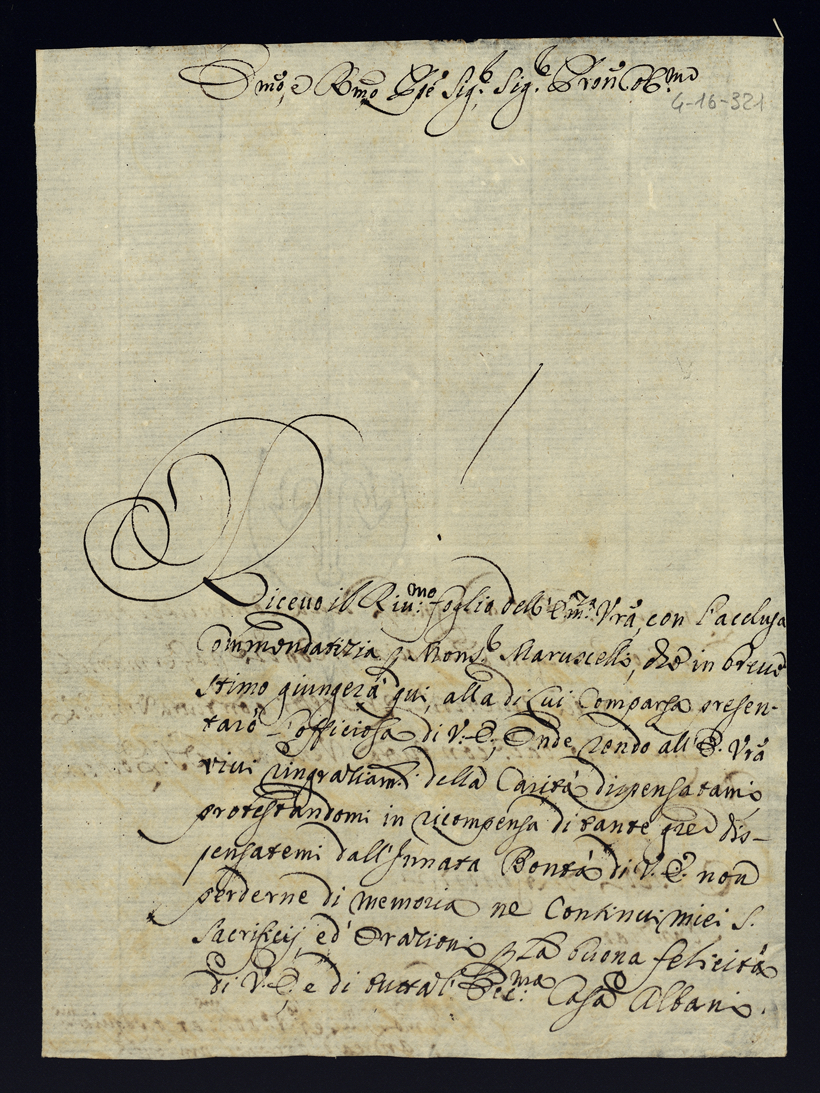 Emo, e Rmo Pnpe Sigr. Sigr. Pron Cobmo
4-16-321
Ricevo il Rivmo: foglio dell' Emza Vrã, con l'acclusa
Commendatizia p Monsr. Maruscelli, che in breve
stimo giungerà qui, alla di lui Comparsa presen-
tarò l'officiosa di V. E; Onde rendo all' E. Vrã
vivi ringraziamti. della Carità dispensatami,
protestandomi in ricompensa di tante grẽ dis-
pensatemi dall' Innata Bontà di V. E. non
perderne di memoria ne Continui miei S.
Sacrificij, ed' Orazioni p La buona felicità
di V. E, e di tutta l' Eccma: Casa Albani.